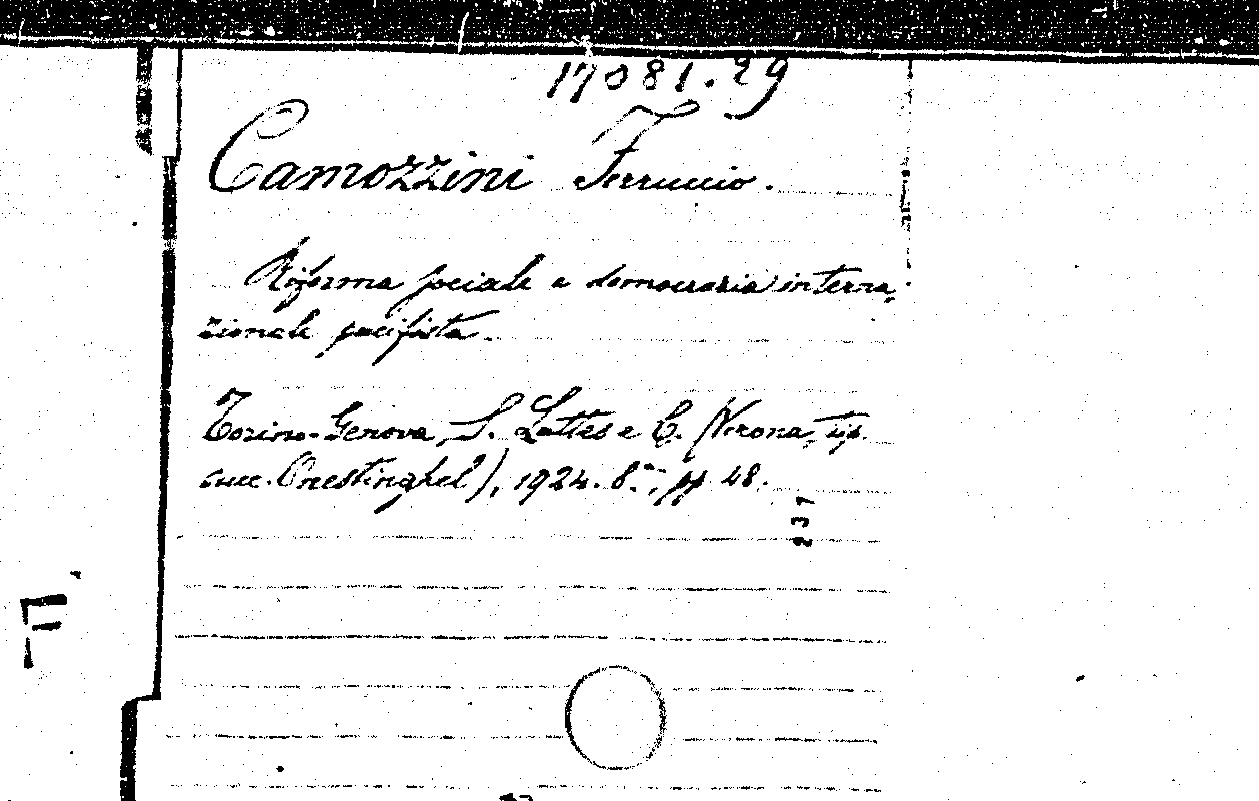 17081.29
Camozzini Ferruccio.
Riforma sociale e democrazia interna-
zionale pacifista.
Torino-Genova, S. Lattes e C. (Verona, tip.
succ. Onestinghel), 1924. 8.°, pp 48.
237